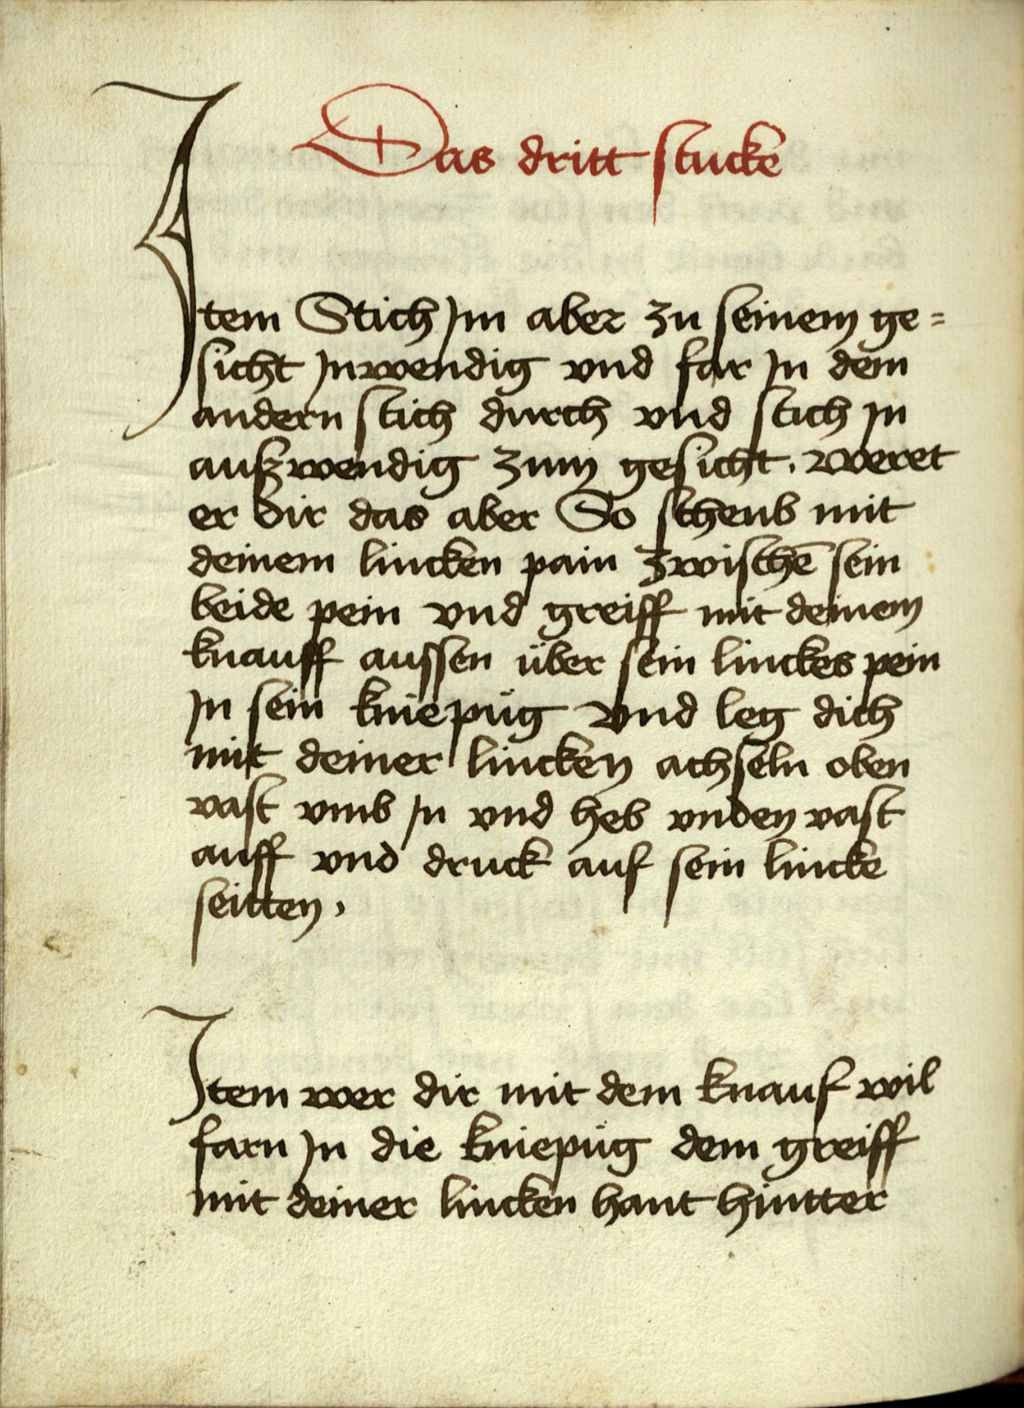 Das dritt stucke
Item Stich Jm aber zu seinem ge=
sicht Jnwendig vnd far Jn dem
andern stich durch vnd stich Jn
außwendig zum gesicht. Weret
er dir das aber So scheub mit
deinem lincken pain zwischē sein
beide pein vnd greiff mit deinem
knauff aussen über sein linckes pein
Jn sein kniepüg Vnd leg dich
mit deiner lincken achseln oben
vast vmb Jn vnd heb vnden vast
auff vnd druck auf sein lincke
seitten.
Item wer dir mit dem knauf wil
farn Jn die kniepüg dem greiff
mit deiner lincken hant hintter